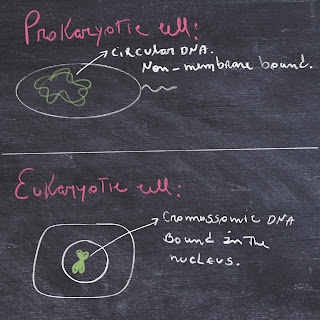 Prokaryotic cell:
Circular DNA.
Non-membrane bound.
Eukaryotic cell:
Cromossomic DNA
Bound in the
nucleus.